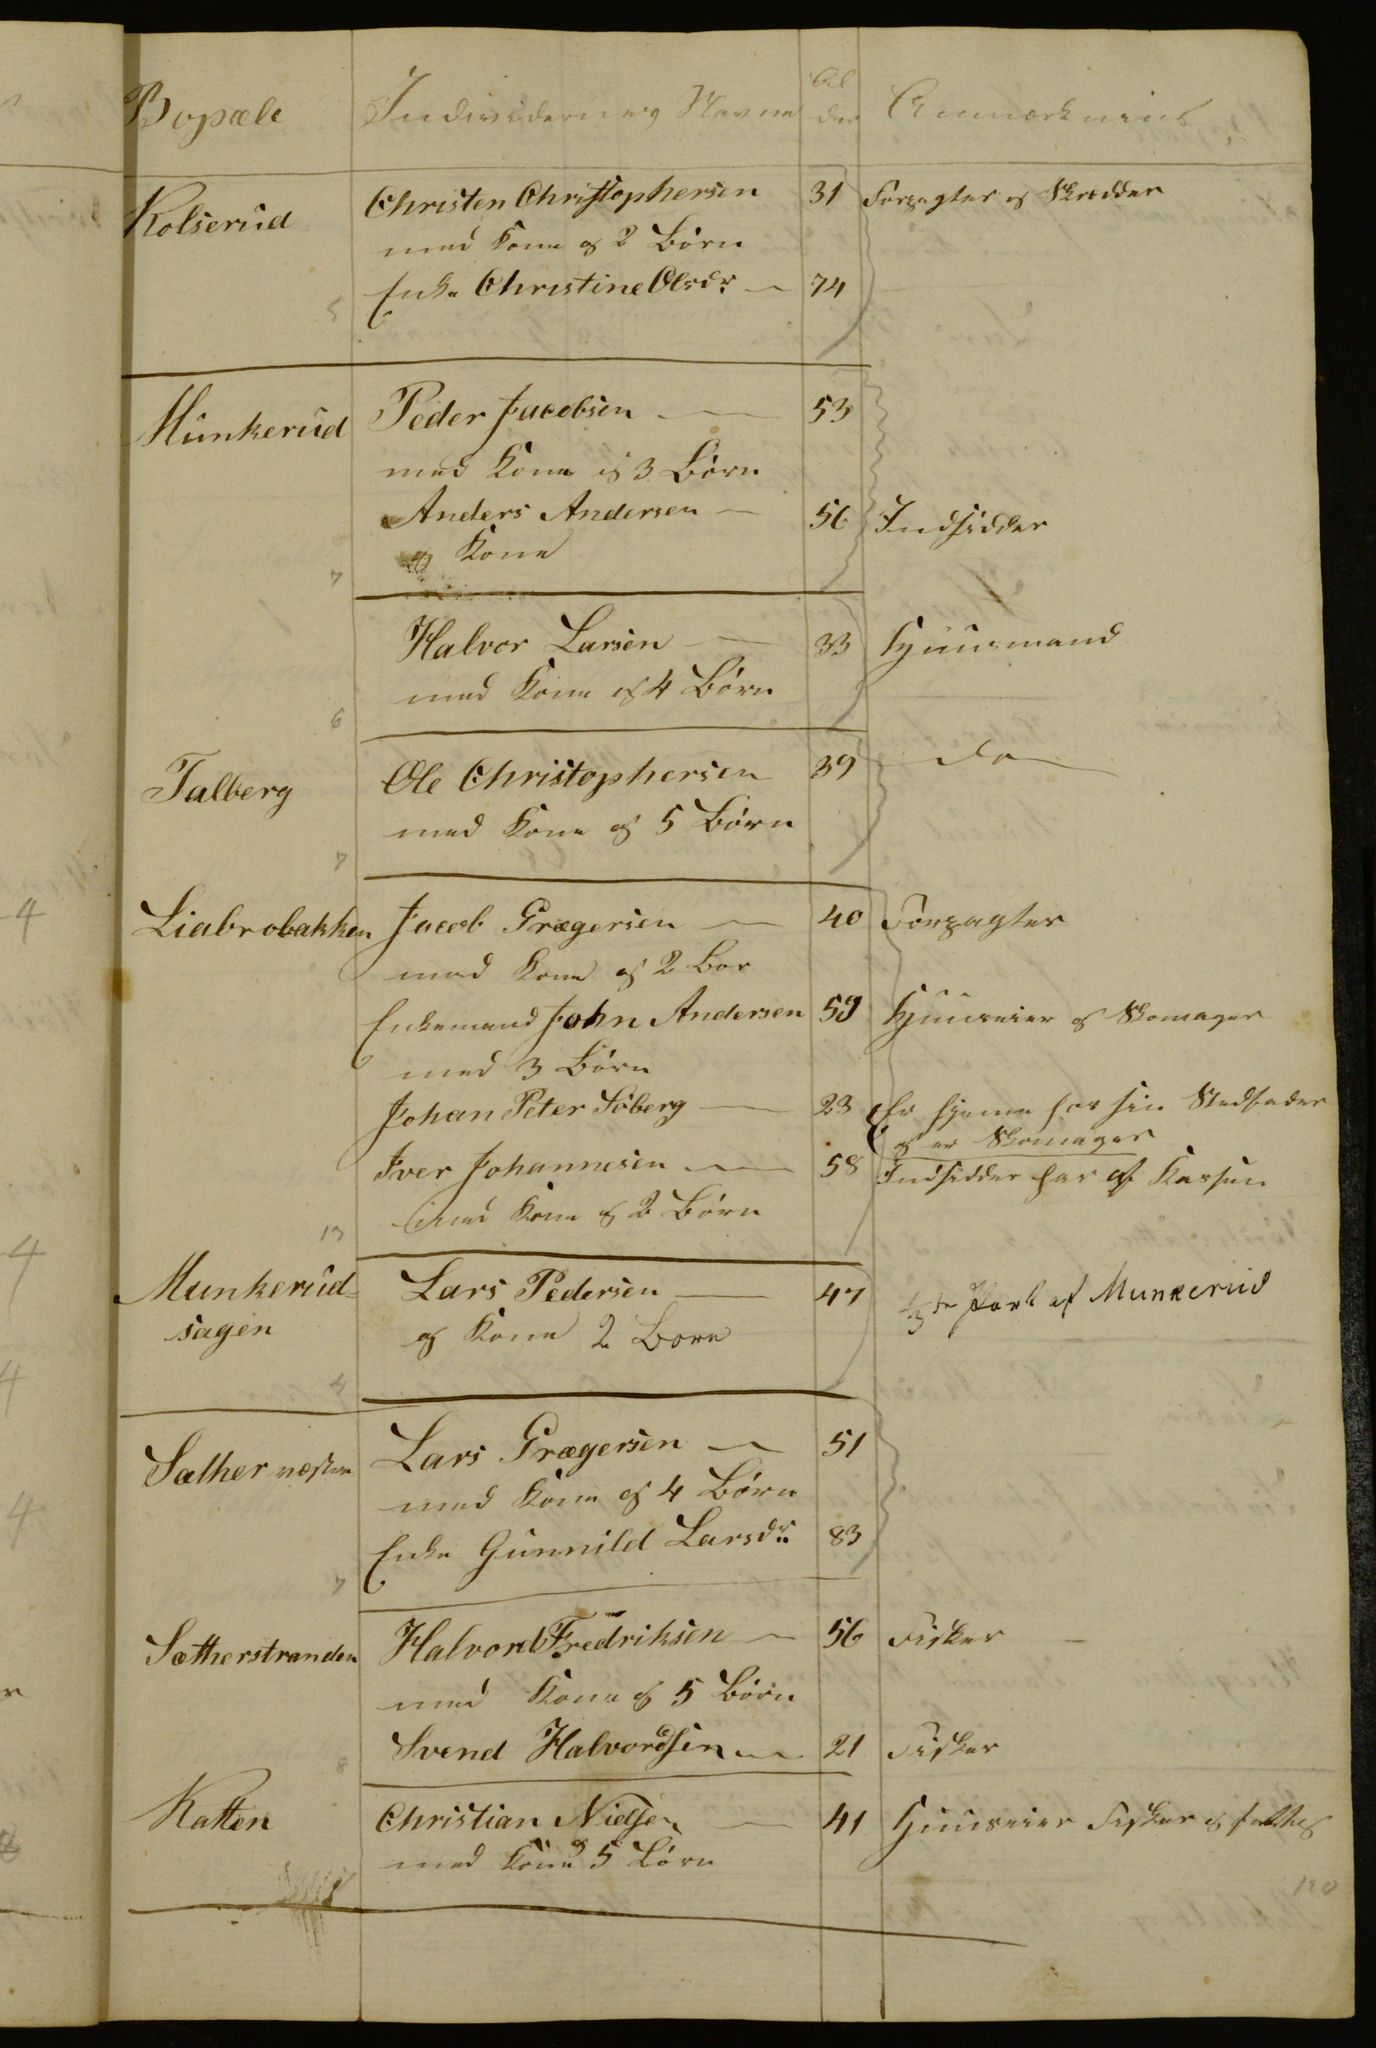 Bopæle Individernes Navne Al der Anmærkning
Kolserud Christen Christophersen 31 Forpagter og Skrædder
med Kone og 2 Börn
Enke Christine Olsdr 74
5
Munkerud Peder Jacobsen 53
med Kone og 3 Börn
Anders Andersen 56 Indsidder
og Kone
7
Halvor Larsen 33 Huusmand
med Kone og 4 Börn
6
Talberg Ole Christophersen 39 do
med Kone og 5 Börn
7
Liabrobakken Jacob Grægersen 40 Forpagter
med Kone og 2 Bor
Enkemand John Andersen 59 Huuseier og Skomager
med 3 Börn
Johan Peter Söberg 23 Er hjemme hos sin Stedfader
og er Skomager
Iver Johannesen 58 Indsidder har af Kassen
med Kone og 2 Börn
13
Munkerud= Lars Pedersen 47 1/3de Part af Munkerud
sagen og Kone 2 Born
4
Sæther næstre Lars Grægersen 51
med Kone og 4 Börn
Enke Gunnild Larsdr 83
7
Sætherstranden Halvord Fredriksen 56 Fisker
med Kone og 5 Börn
Svend Halvordsen 21 Fisker
8
Katten Christian Nielsen 41 Huuseier Fisker og
med Kone 5 Börn